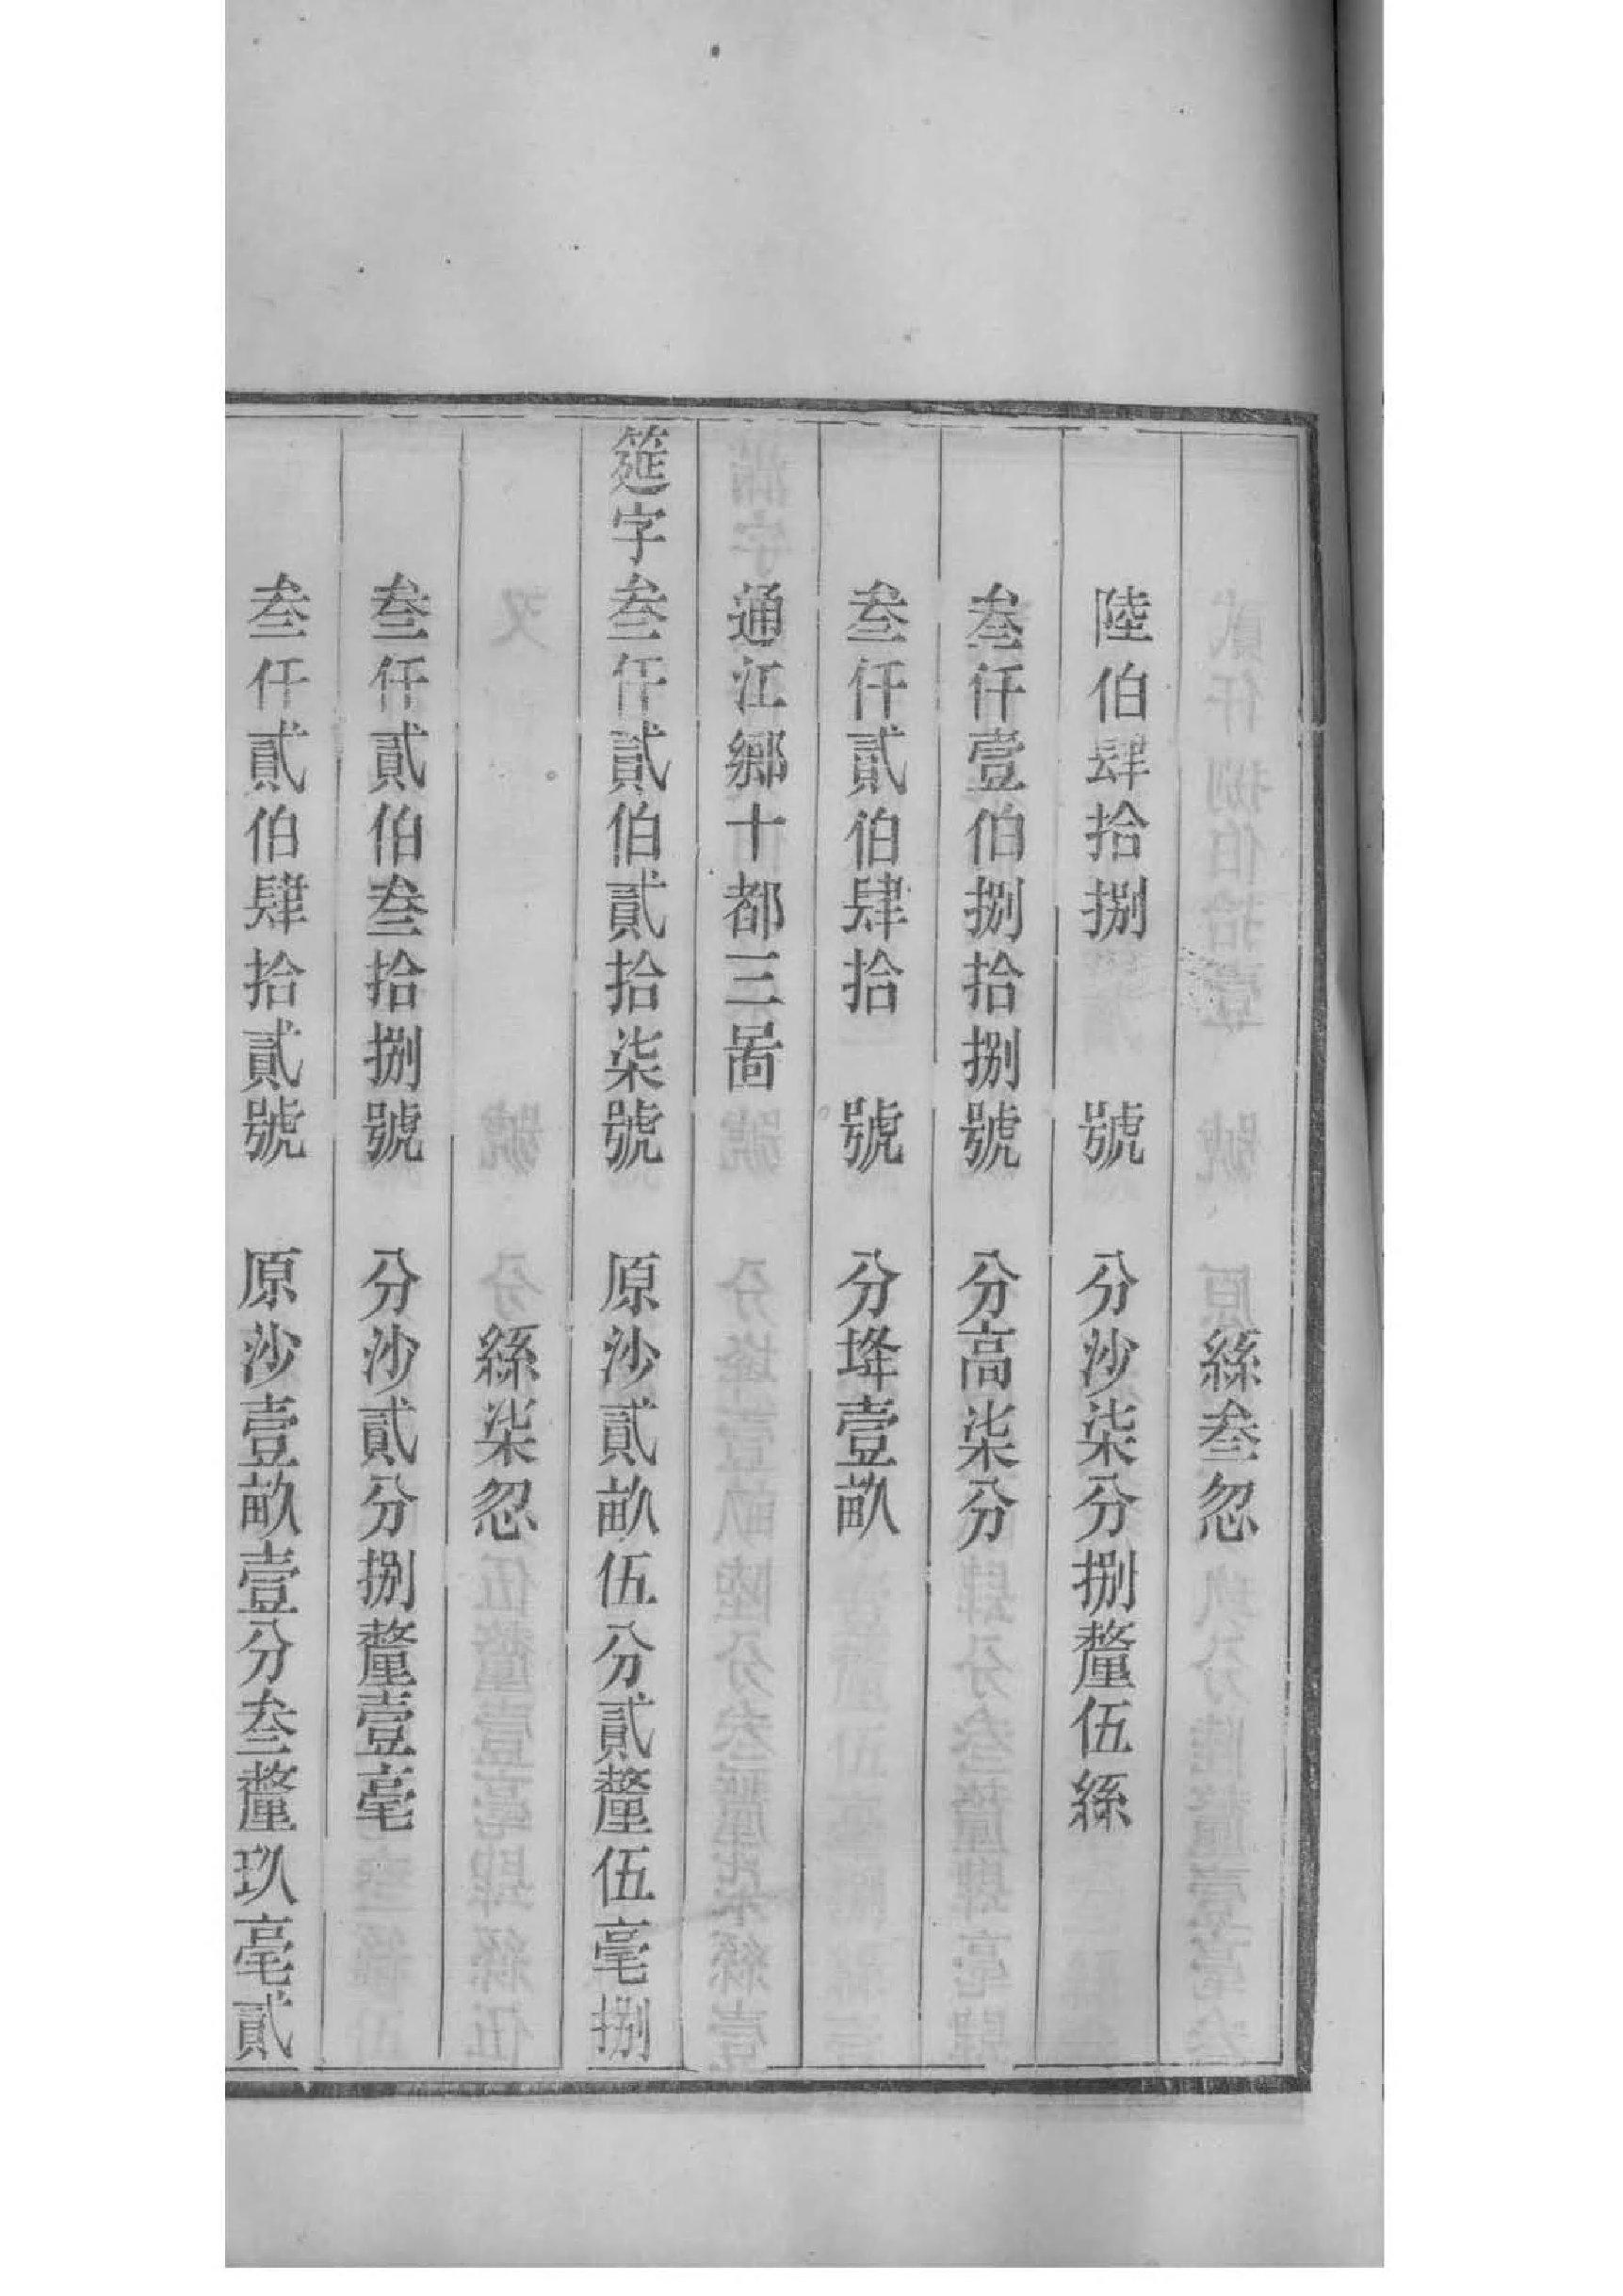 絲叄忽
陸伯肆拾捌 號 分沙柒分捌釐伍絲
叄仟壹伯捌拾捌號 分高柒分
叄仟貳伯肆拾 號 分埄壹畝
通江鄉十都三啚
筵字叄仟貳伯貳拾柒號 原沙貳畝伍分貳釐伍毫捌
絲柒忽
叄仟貳伯叄拾捌號 分沙貳分捌釐壹毫
叄仟貳伯肆拾貳號 原沙壹畝壹分叄釐玖毫貳